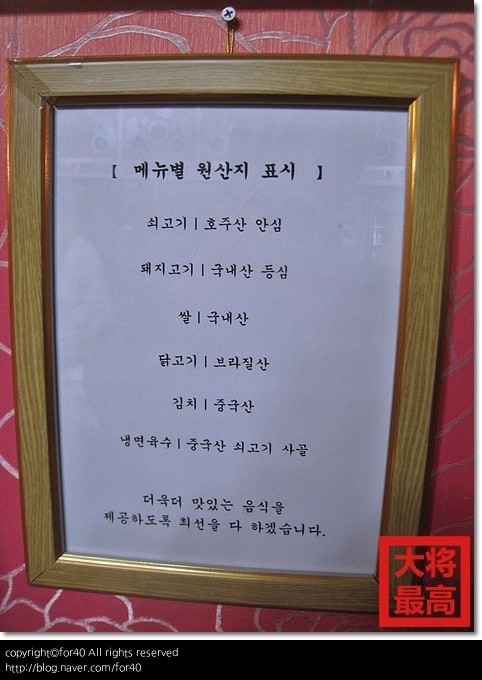 [ 메뉴별 원산지 표시 ]
쇠고기 | 호주산 안심
돼지고기 | 국내산 등심
쌀 | 국내산
닭고기 | 브라질산
김치 | 중국산
냉면육수 | 중국산 쇠고기 사골
더욱더 맛있는 음식을
제공하도록 최선을 다 하겠습니다.
大将
最高
copyright©for40 All rights reserved
http://blog.naver.com/for40